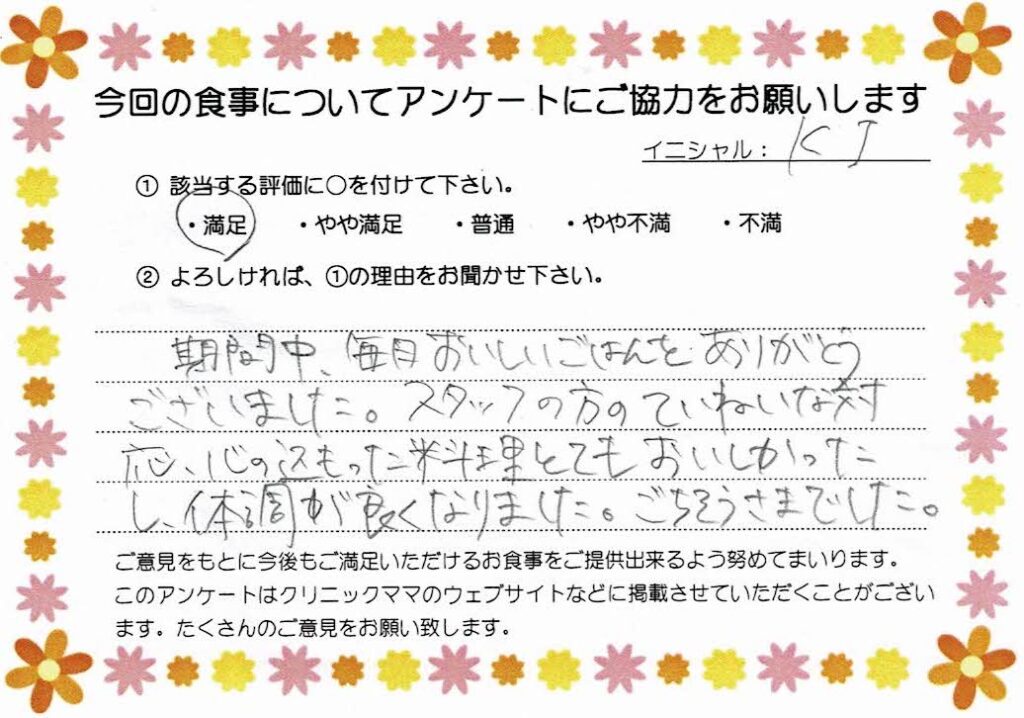 今回の食事についてアンケートにご協力をお願いします
イニシャル： K I
① 該当する評価に○を付けて下さい。
・満足 ・やや満足 ・普通 ・やや不満 ・不満
② よろしければ、①の理由をお聞かせ下さい。
期間中、毎日おいしいごはんをありがとう
ございました。スタッフの方のていねいな対
応、心の込もった料理とてもおいしかった
し、体調が良くなりました。ごちそうさまでした。
ご意見をもとに今後もご満足いただけるお食事をご提供出来るよう努めてまいります。
このアンケートはクリニックママのウェブサイトなどに掲載させていただくことがござい
ます。たくさんのご意見をお願い致します。